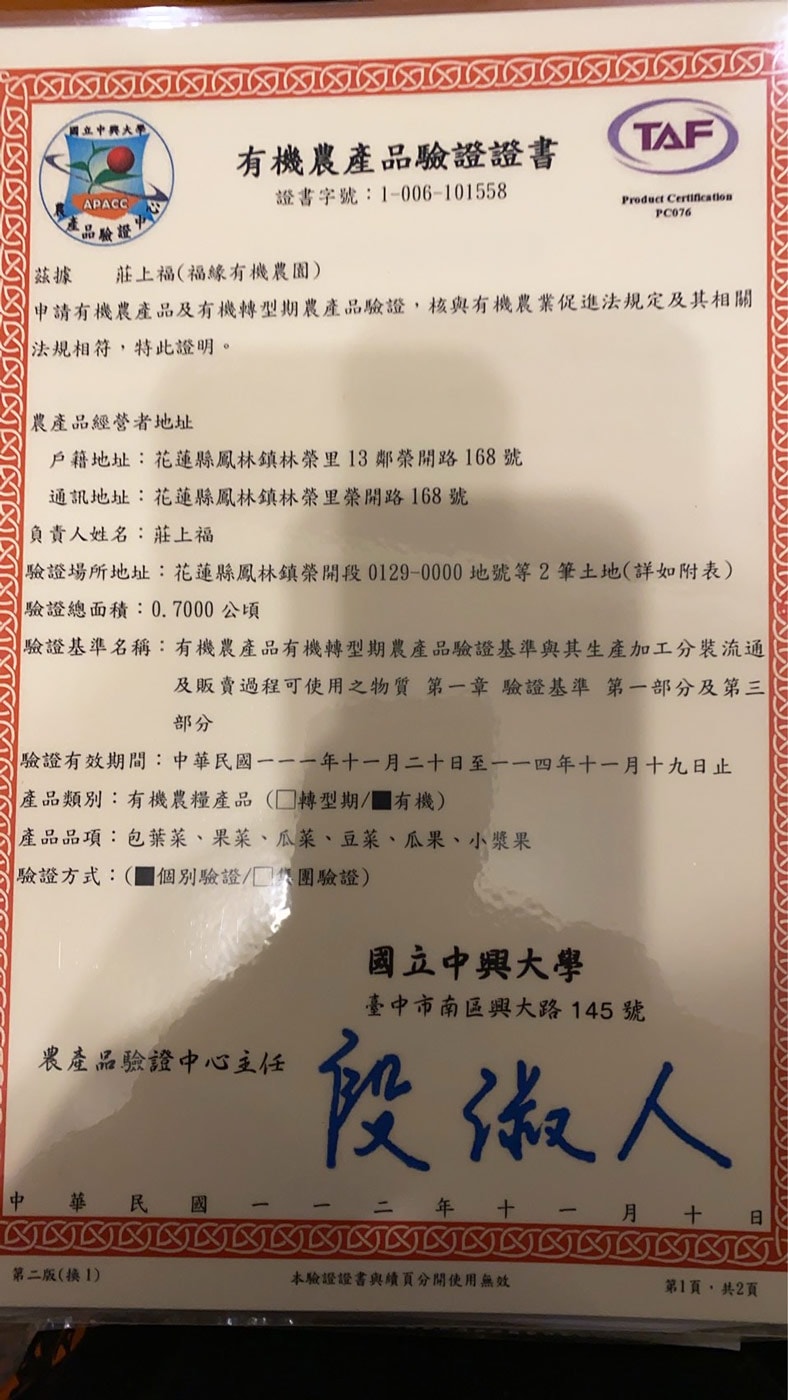 國立中興大學
APACC
農產品驗證中心
有機農產品驗證證書
TAF
證書字號：1-006-101558
Product Certification
PC076
茲據　　莊上福(福緣有機農園)
申請有機農產品及有機轉型期農產品驗證，核與有機農業促進法規定及其相關
法規相符，特此證明。
農產品經營者地址
戶籍地址：花蓮縣鳳林鎮林榮里 13 鄰榮開路 168 號
通訊地址：花蓮縣鳳林鎮林榮里榮開路 168 號
負責人姓名：莊上福
驗證場所地址：花蓮縣鳳林鎮榮開段 0129-0000 地號等 2 筆土地(詳如附表)
驗證總面積：0.7000 公頃
驗證基準名稱：有機農產品有機轉型期農產品驗證基準與其生產加工分裝流通
及販賣過程可使用之物質 第一章 驗證基準 第一部分及第三
部分
驗證有效期間：中華民國一一一年十一月二十日至一一四年十一月十九日止
產品類別：有機農糧產品 (□轉型期/■有機)
產品品項：包葉菜、果菜、瓜菜、豆菜、瓜果、小漿果
驗證方式：(■個別驗證/□集團驗證)
國立中興大學
臺中市南區興大路 145 號
農產品驗證中心主任 段淑人
中華民國一一二年十一月十日
第二版(換 1)
本驗證證書與續頁分開使用無效
第1頁，共2頁